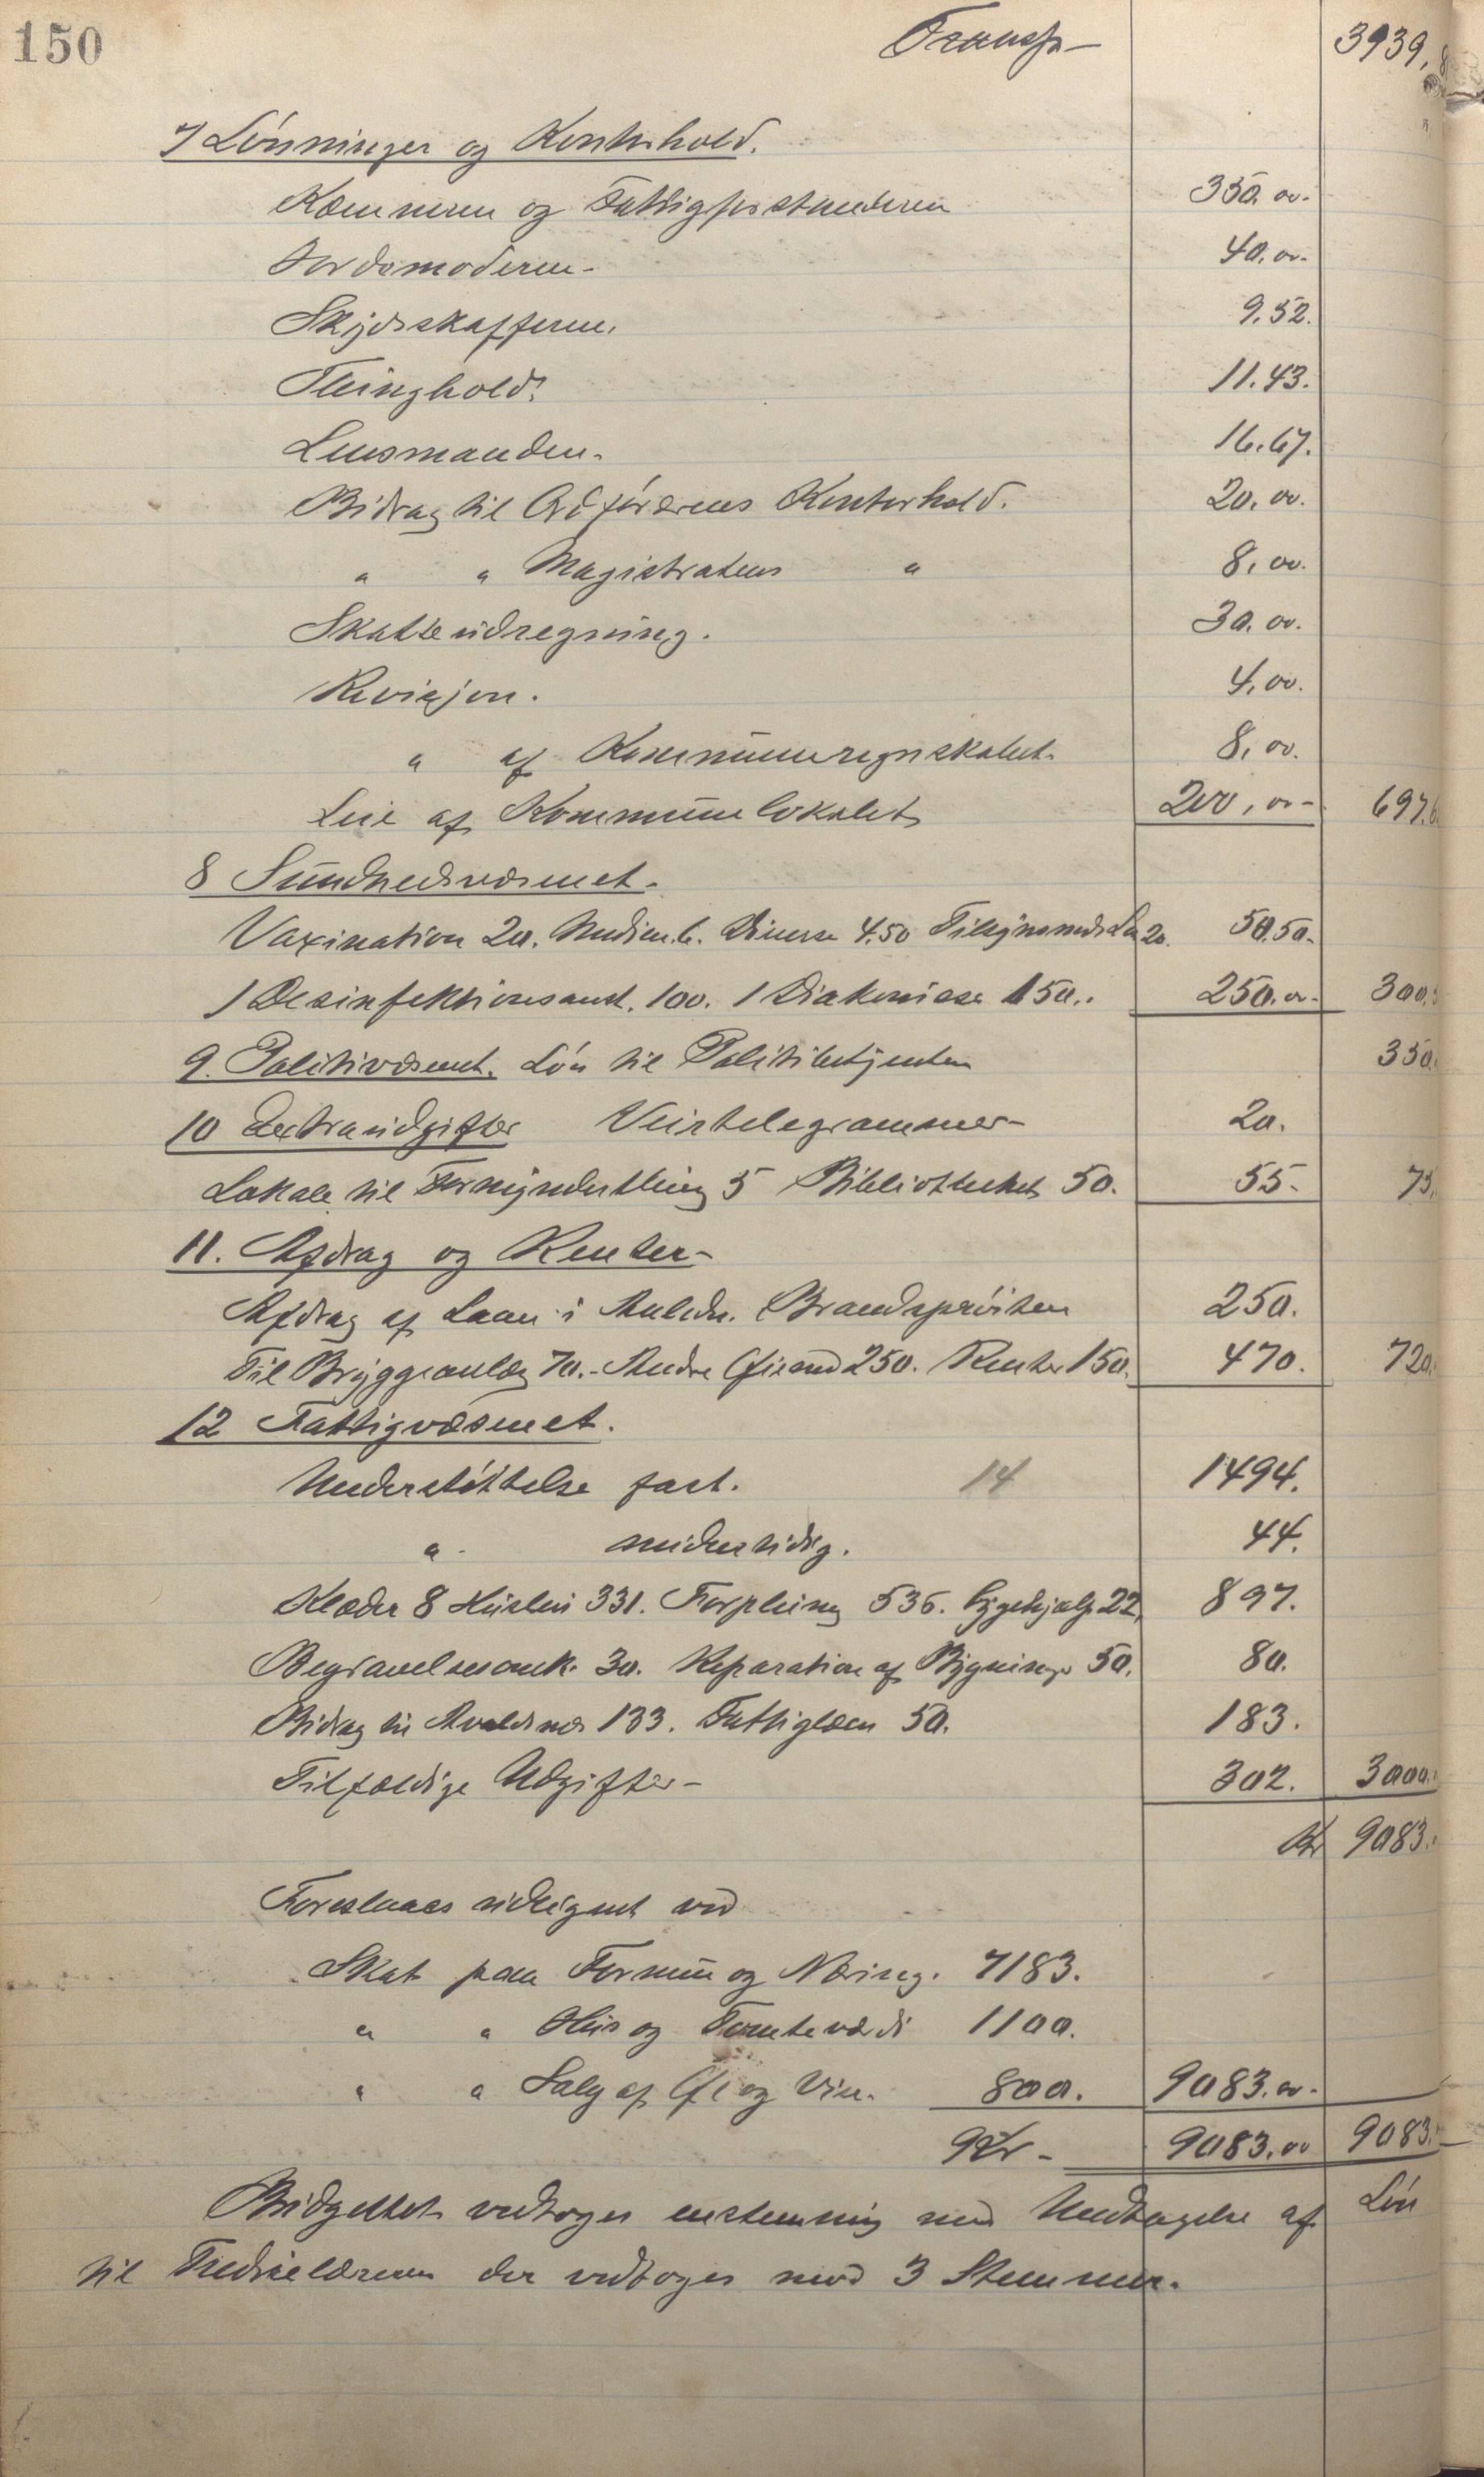 150 Transp- 3939,8
7 Lönninger og Kontorhold.
Kæmneren og Fattigforstanderen 350.00.
Jordemoderen- 40.00-
Skydsskafferen. 9.52.
Thinghold. 11.43.
Lensmanden. 16.67.
Bidrag til Ordförerens Kontorhold. 20.00.
" " Magistratens " 8.00.
Skatteudregning. 30.00.
Revisjon. 4.00.
" af Kommuneregnskabet. 8.00.
Leie af Kommunelokalet 200,00- 697.6
8 Sundhedsvæsenet-
Vaxination 20. Medicin 6. Diverse 4.50 20. 50.50.
1 Desinfektionsanst. 100. 1 Diakonisse 150.. 250.00- 300.5
9. Politivæsenet. Lön til Politibetjenten 350.
10 Extraudgifter Veirtelegrammer- 20.
Lokale til Formynderthing 5 Bibliotheket 50. 55- 75.
11. Afdrag og Renter-
Afdrag af Laan i Brandspröiten 250.
Til Bryggeanlæg 70.- Andre Öiemed 250. Renter 150. 470. 720.
12 Fattigvæsenet.
Understöttelse fast. 14 1494.
" midlertidig. 44.
Klæder 8 Husleie 331. Forpleining 536. Lægehjælp 22, 897.
Begravelsesomk. 30. Reparation af Bygninger 50. 80.
Bidrag til Avaldsnes 133. Fattiglæen 50. 183.
Tilfældige Udgifter- 302. 3000.
Kr 9083.
Foreslaaes udlignet ved
Skat paa Formue og Næring. 7183.
" " Hus og Tomteværdi 1100.
" " Salg af Öl og Vin. 800. 9083.00-
Kr- 9083.00 9083.-
Budgettet vedtoges enstemmig med Undtagelse af Lön
til Tredielæreren der vedtoges mod 3 Stemmer.